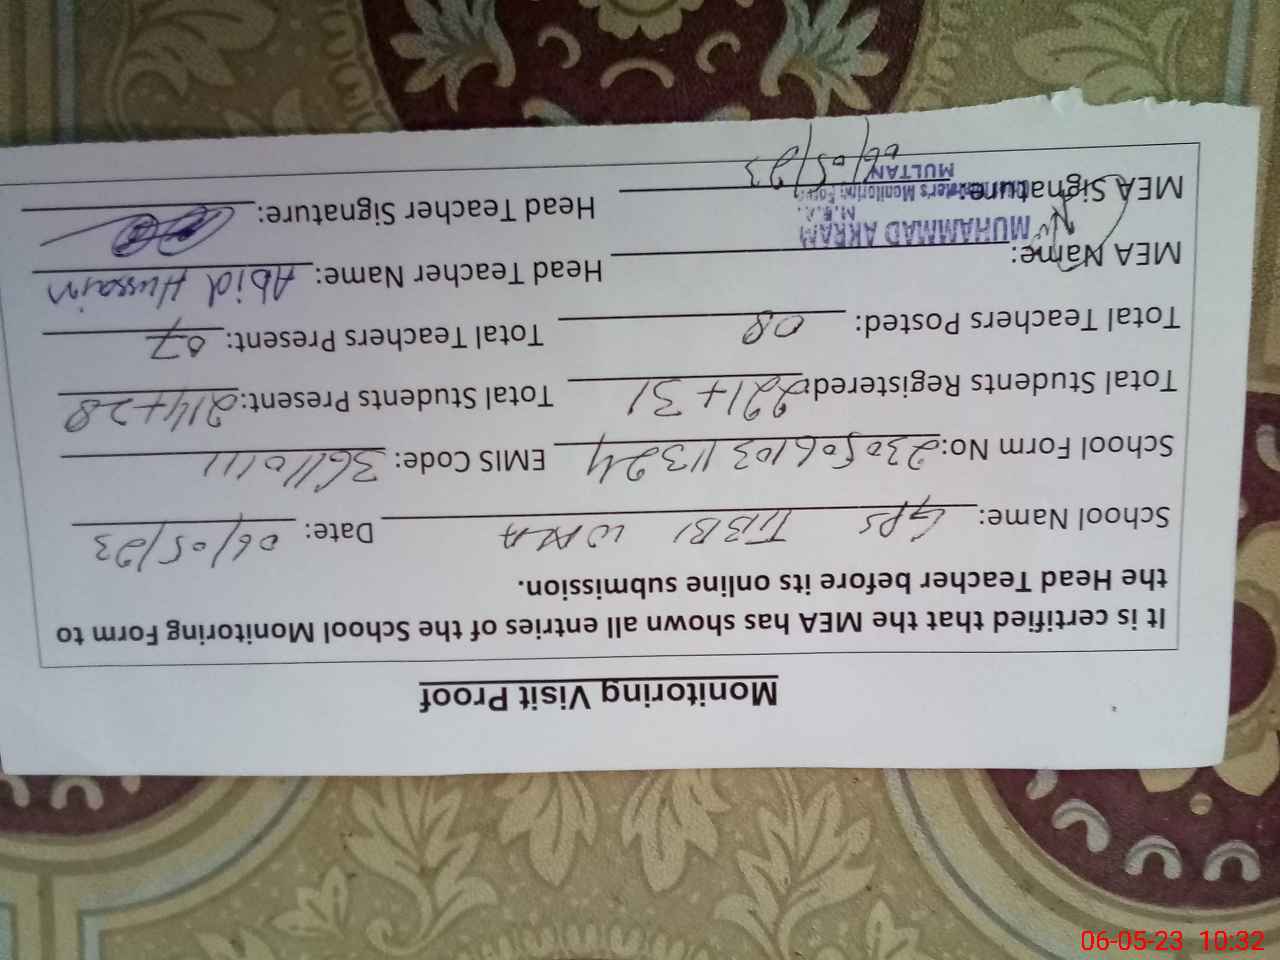 Monitoring Visit Proof
It is certified that the MEA has shown all entries of the School Monitoring Form to
the Head Teacher before its online submission.
School Name: GPS TIBBI WALA Date: 06/05/23
School Form No: 23050610311324 EMIS Code: 36110111
Total Students Registered: 221+31 Total Students Present: 214+28
Total Teachers Posted: 08 Total Teachers Present: 07
MEA Name: MUHAMMAD AKRAM Head Teacher Name: Abid Hussain
M.E.A.
MEA Signature: Monitoring Force Head Teacher Signature:
MULTAN
06/05/23
06-05-23 10:32